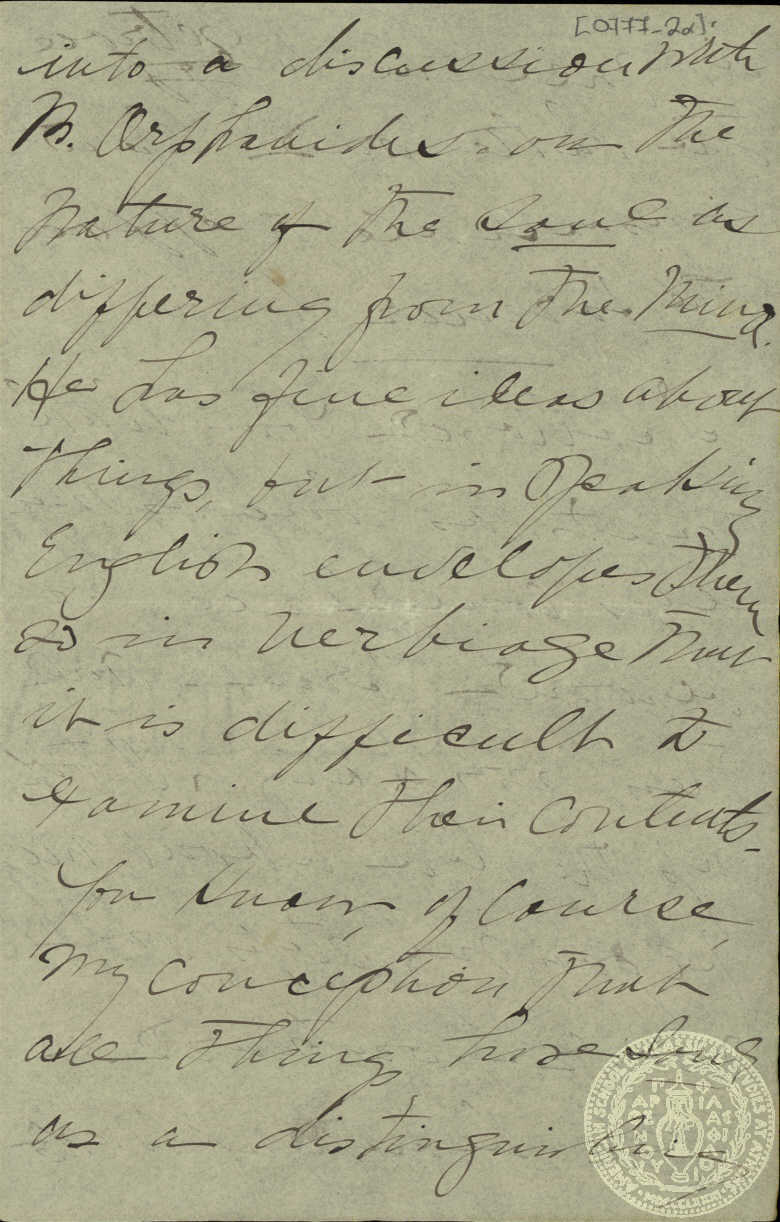 [0777-2a].
into a discussion with
M. Orphanides on the
Nature of the soul as
differing from the Mind.
He has fine ideas about
things, but in speaking
English envelopes them
so in verbiage that
it is difficult to
examine their contents.
You know, of course,
my conception that
all things have soul
as a distinguishing
AMERICAN SCHOOL OF CLASSICAL STUDIES AT ATHENS
ΠΑΡΘΕΝΟΥ ΦΙΛΑΣ